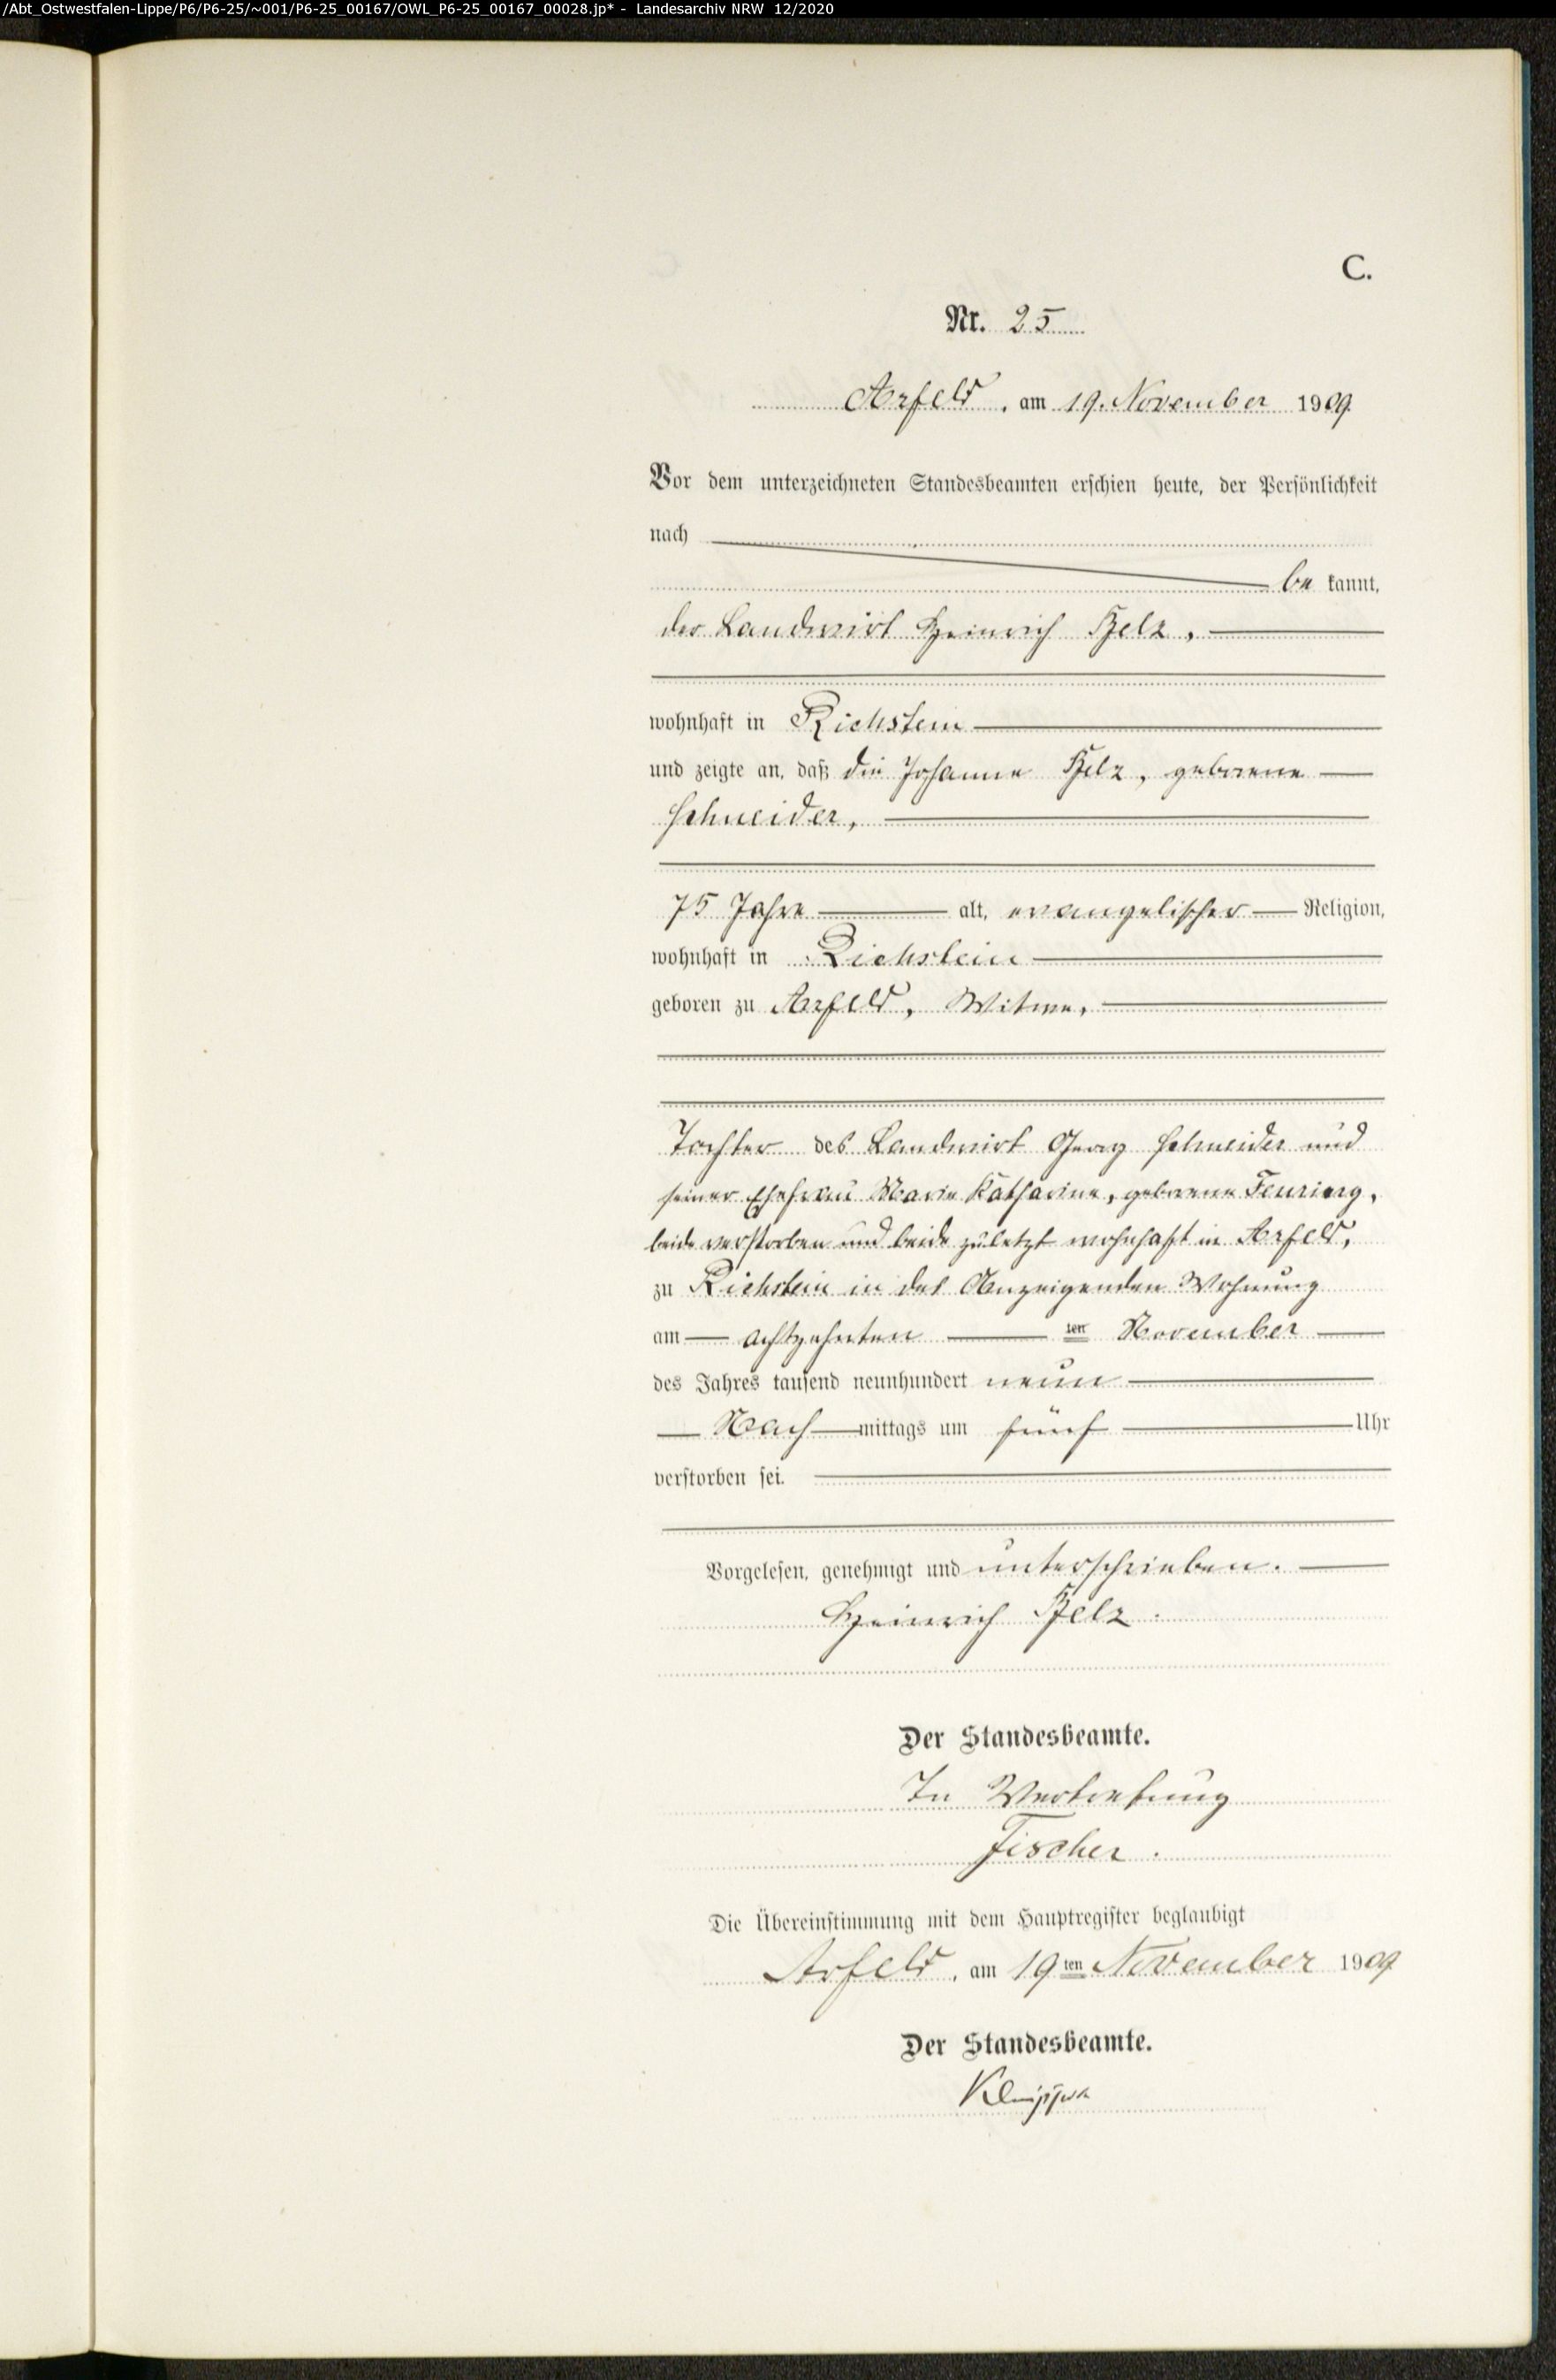 /Abt_Ostwestfalen-Lippe/P6/P6-25/~001/P6-25_00167/OWL_P6-25_00167_00028.jp* - Landesarchiv NRW 12/2020
C.
Nr. 25
Arfeld, am 19. November 1909
Vor dem unterzeichneten Standesbeamten erschien heute, der Persönlichkeit
nach
be kannt,
der Landwirt Heinrich Pelz,
wohnhaft in Richstein
und zeigte an, daß die Johanne Pelz, geborene
Schneider,
75 Jahre alt, evangelischer Religion,
wohnhaft in Richstein
geboren zu Arfeld, Witwe,
Tochter des Landwirt Georg Schneider und
seiner Ehefrau Marie Katharine, geborene
beide verstorben und beide zuletzt wohnhaft in Arfeld,
zu Richstein in des Anzeigenden Wohnung
am achtzehnten ten November
des Jahres tausend neunhundert neun
Nach mittags um fünf Uhr
verstorben sei.
Vorgelesen, genehmigt und unterschrieben.
Heinrich Pelz.
Der Standesbeamte.
In Vertretung
Fischer.
Die Übereinstimmung mit dem Hauptregister beglaubigt
Arfeld, am 19ten November 1909
Der Standesbeamte.